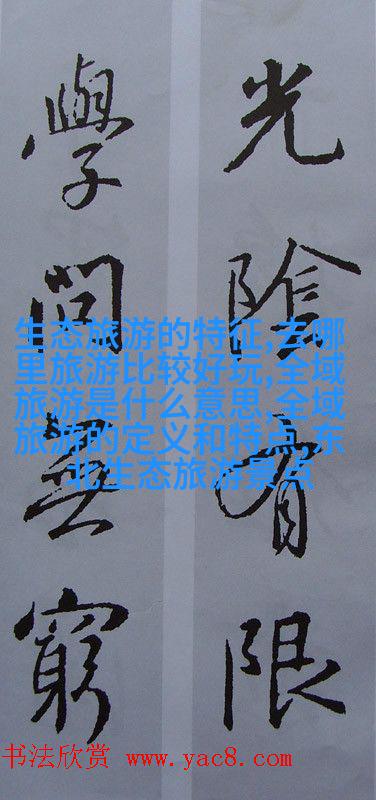 光陰有限
學問無窮
生态旅游的特征,去哪
里旅游比较好玩,全域
旅游是什么意思,全域
旅游的定义和特点,东
北生态旅游景点
书法欣赏 www.yac8.com